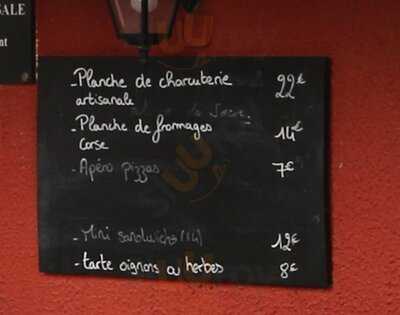 SALE
nt
- Planche de charcuterie 22€
artisanale
- Planche de fromages 14€
Corse
- Apéro pizzas 7€
- Mini sandwichs (14) 12€
- tarte oignons ou herbes 8€